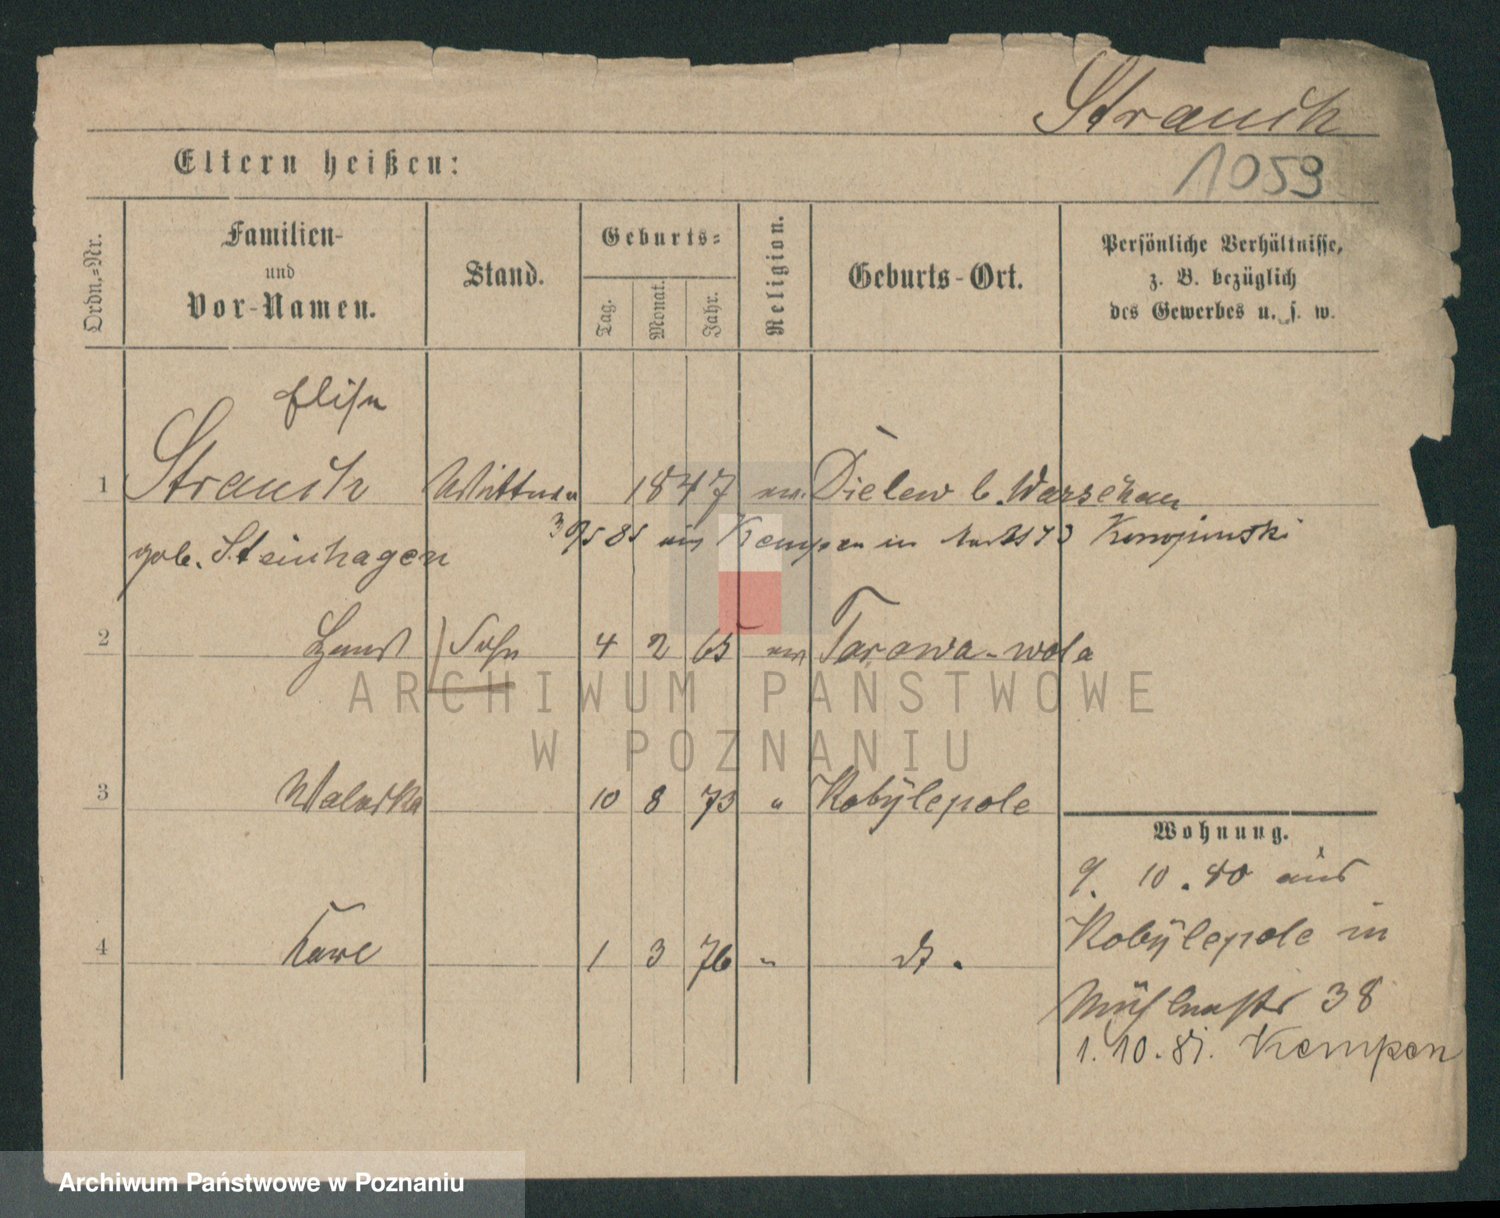 Strauch
1059
Eltern heißen:
Ordn.-Nr.
Familien-
und
Vor-Namen.
Stand.
Geburts-
Tag.
Monat.
Jahr.
Religion.
Geburts-Ort.
Persönliche Verhältnisse,
z. B. bezüglich
des Gewerbes u. s. w.
Elise
1 Strauch Wittwe 1847 ev. Dielew b. Warschau
geb. Steinhagen
30/5 85 aus Kempen in
2 Sohn 4 2 65 ev Tarowa-wola
ARCHIWUM PAŃSTWOWE
W POZNANIU
3 Waleska 10 8 73 " Kobÿlepole
4 Karl 1 3 76 " dt.
Wohnung.
9. 10. 80 aus
Kobÿlepole in
Mühlenstr 38
1. 10. 81. Kempen
Archiwum Państwowe w Poznaniu